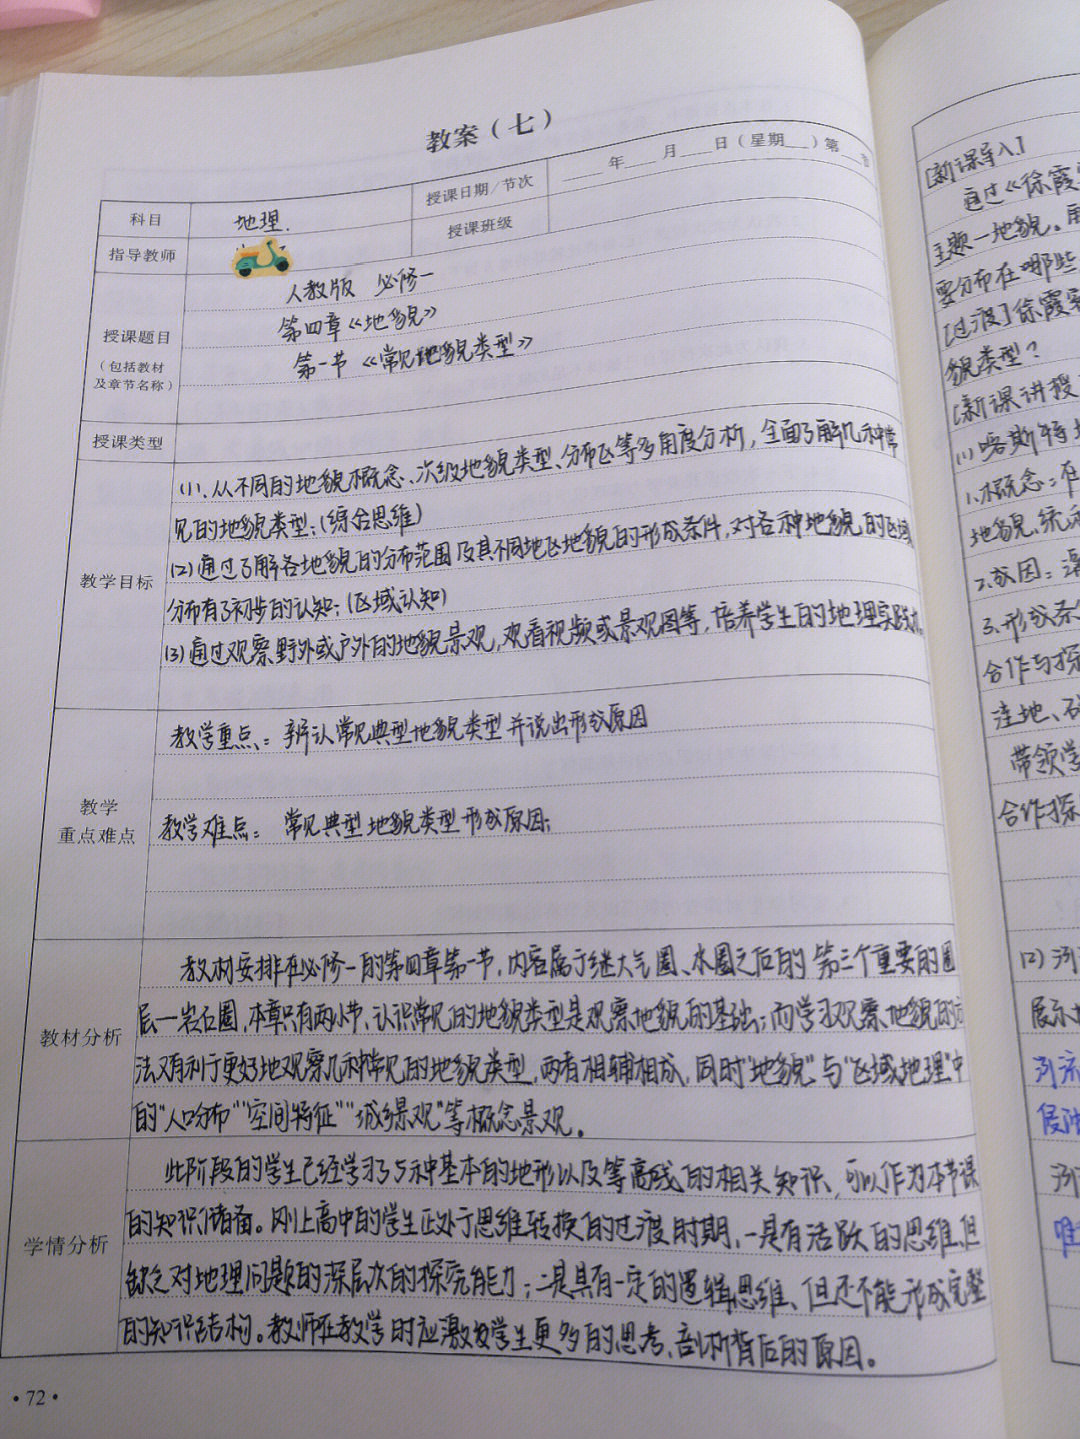 教案（七）
科目
地理.
授课日期/节次
年 月 日（星期 ）第
指导教师
授课班级
授课题目
（包括教材
及章节名称）
人教版 必修一
第四章《地貌》
第一节《常见地貌类型》
授课类型
教学目标
(1)、从不同的地貌概念、次级地貌类型、分布区等多角度分析，全面了解几种常
见的地貌类型；(综合思维)
(2)通过了解各地貌的分布范围及其不同地区地貌的形成条件，对各种地貌的区域
分布有了初步的认知；(区域认知)
(3)通过观察野外或户外的地貌景观，观看视频或景观图等，培养学生的地理实践力。
教学
重点难点
教学重点：辨认常见典型地貌类型并说出形成原因
教学难点：常见典型地貌类型形成原因；
教材分析
教材安排在必修一的第四章第一节，内容属于继大气圈、水圈之后的第三个重要的圈
层—岩石圈，本章只有两小节、认识常见的地貌类型是观察地貌的基础；而学习观察地貌的方
法又有利于更好地观察几种常见的地貌类型，两者相辅相成，同时“地貌”与“区域地理”中
的“人口分布”“空间特征”“城乡景观”等概念景观。
学情分析
此阶段的学生已经学习了5种基本的地形以及等高线的相关知识、可以作为本节课
的知识储备。刚上高中的学生正处于思维转换的过渡时期，一是有活跃的思维，但
缺乏对地理问题的深层次的探究能力；二是具有一定的逻辑思维、但还不能形成完整
的知识结构。教师在教学时应激发学生更多的思考、剖析背后的原因。
·72·
[新课导入]
通过《徐霞
主题—地貌。
要分布在哪些
[过渡]徐霞
貌类型？
[新课讲授
(1)喀斯特地
1.概念：在
地貌、统
2.成因：
3.形成条
合作与探
洼地、
带领学
合作探
(2)河
展示
河流
侵蚀
河